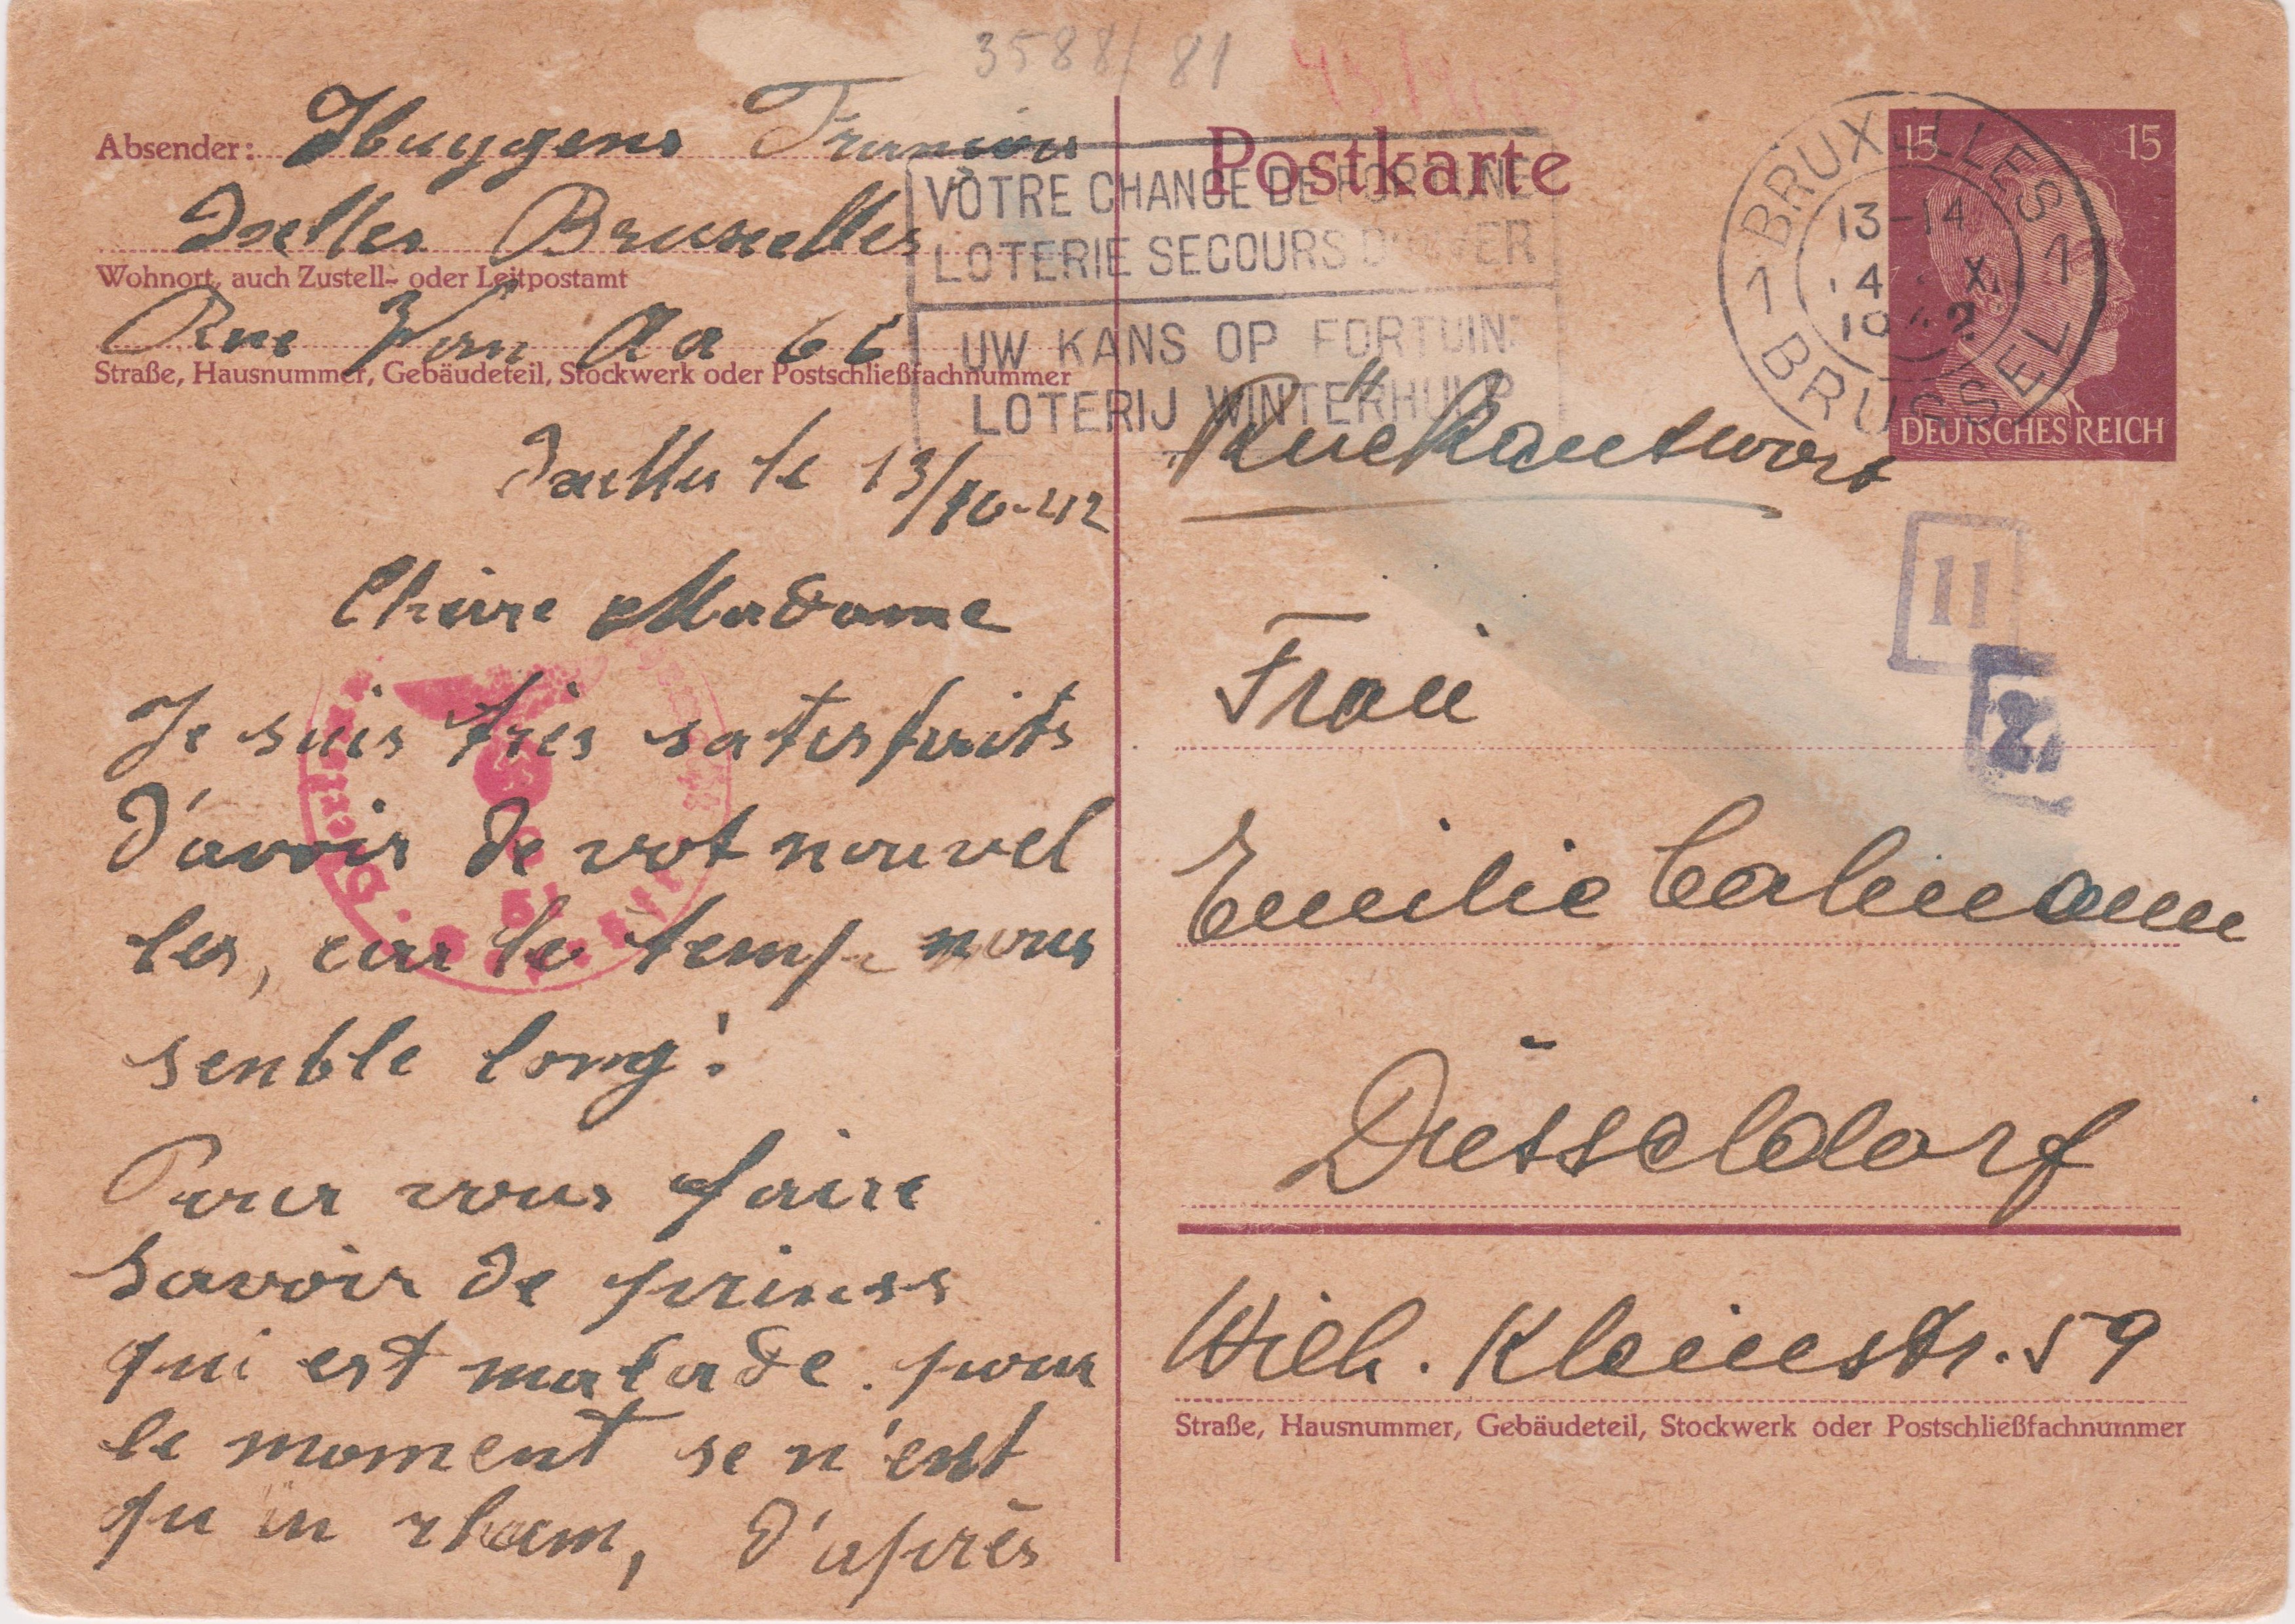 3588/81
Absender: Huygens François
Ixelles Bruxelles
Wohnort, auch Zustell- oder Leitpostamt
Rue Van Aa 66
Straße, Hausnummer, Gebäudeteil, Stockwerk oder Postschließfachnummer
Ixelles le 13/10-42
Chère Madame
Je suis très satisfaits
d'avoir de vot nouvel
les, car le temp nous
senble long!
Pour vous faire
savoir de prinss
qui est malade. pour
le moment se n'est
qu'un rhum, d'après
VOTRE CHANCE DE FORTUNE
LOTERIE SECOURS D'HIVER
UW KANS OP FORTUIN:
LOTERIJ WINTERHULP
Postkarte
BRUXELLES
1 1
13-14
14 XI
1942
BRUSSEL
15 15
DEUTSCHES REICH
Rückantwort
11
2
Frau
Emilie Calmann
Düsseldorf
Wilh. Kleinstr. 59
Straße, Hausnummer, Gebäudeteil, Stockwerk oder Postschließfachnummer